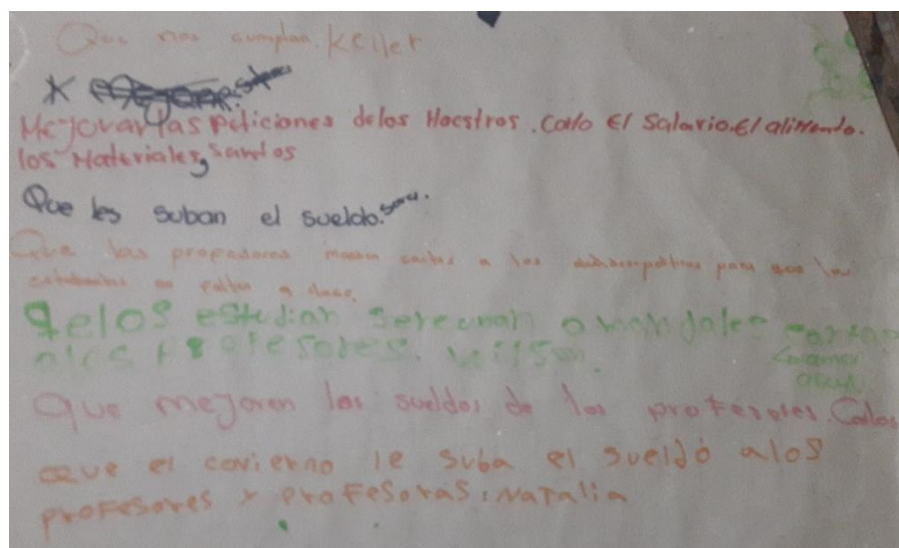 Que nos cumplan. Keller
Mejorar las peticiones delos Maestros. Como El Salario. El alimento.
los Materiales, Santos
Que les suban el sueldo. Sara.
Que los profesores manden cartas a los para que los
estudiantes no falten a clase.
qelos estudian sereunan amandales cartas
alos profesores. wilson.
Que mejoren los sueldos de los profesores. Carlos
que el covierno le suba el sueldo alos
profesores y profesoras: Natalia